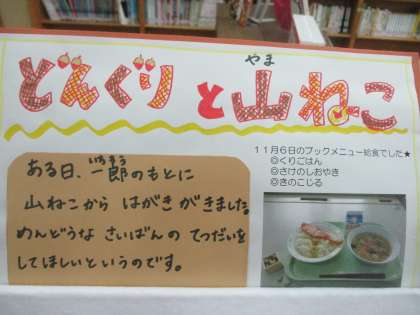 どんぐりと山ねこ
やま
11月6日のブックメニュー給食でした★
◎くりごはん
◎さけのしおやき
◎きのこじる
ある日、一郎のもとに
いちろう
山ねこから はがきがきました。
めんどうな さいばんの てつだいを
してほしいというのです。